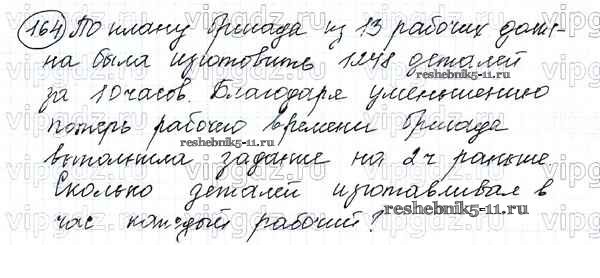 164 По плану бригада из 13 рабочих долж-
на была изготовить 1248 деталей
за 10 часов. Благодаря уменьшению
потерь рабочего времени бригада
выполнила задание на 2 ч раньше.
Сколько деталей изготавливал в
час каждый рабочий?
reshebnik5-11.ru
reshebnik5-11.ru
reshebnik5-11.ru